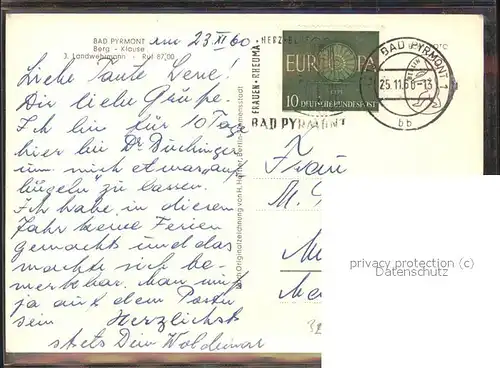 BAD PYRMONT
Berg - Klause
3. Landwehrmann · Ruf 87,00
am 23 XI 60
Liebe Tante Lene!
Dir liebe Grüße.
Ich bin für 10 Tage
hier bei Dr Buchinger
um mich etwas „auf
bügeln" zu lassen.
Ich habe in diesem
Jahr keine Ferien
gemacht und das
machte sich be-
merkbar. Man muß
ja auf dem Posten
sein Herzlichst
stets Dein Woldemar
Originalzeichnung von H.
HERZ-
FRAUEN · RHEUMA
BAD PYRMONT
EUROPA
10 DEUTSCHE BUNDESPOST
BAD PYRMONT 1
25.11.60-13
bb
Frau
M.
privacy protection (c)
Datenschutz